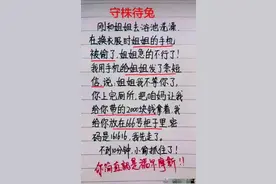 守株待兔
刚和姐姐去浴池洗澡
在换衣服时姐姐的手机
被偷了，姐姐急的不行了！
我用手机给姐姐发了条短
信，说，姐我不等你了，
你上完厕所，把咱妈让我
给你带的2000块钱拿着，我
给你放在166号柜子里，密
码是16616，我先走了。
不到10分钟，小偷抓住了！
你简直就是福尔摩斯！！